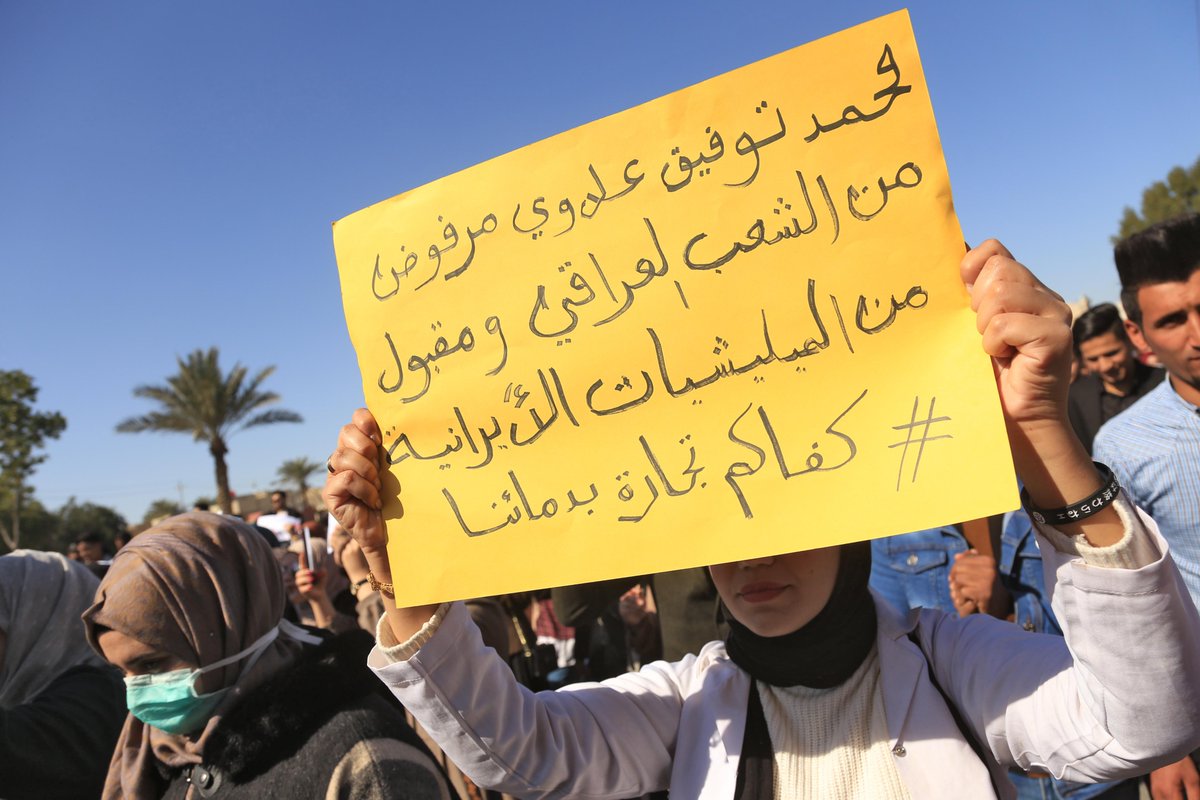 محمد توفيق علاوي مرفوض
من الشعب العراقي ومقبول
من الميليشيات الأيرانية
# كفاكم تجارة بدمائنا